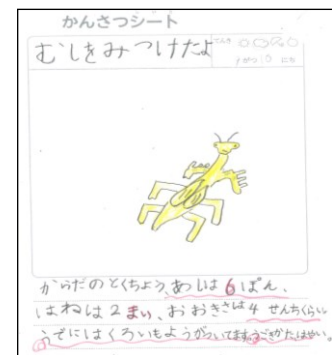 かんさつシート
むしをみつけたよ
てんき
がつ10にち
からだのとくちょう、あしは6ぽん、
はねは2まい、おおきさは4せんちくらい
うでにはくろいもようがついてます。うごきかたははやい。